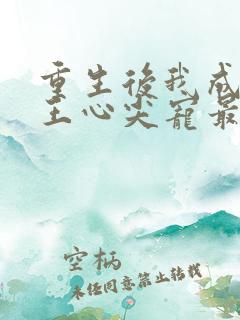 重生後我成
王心尖寵最
空柄
未经同意禁止转载